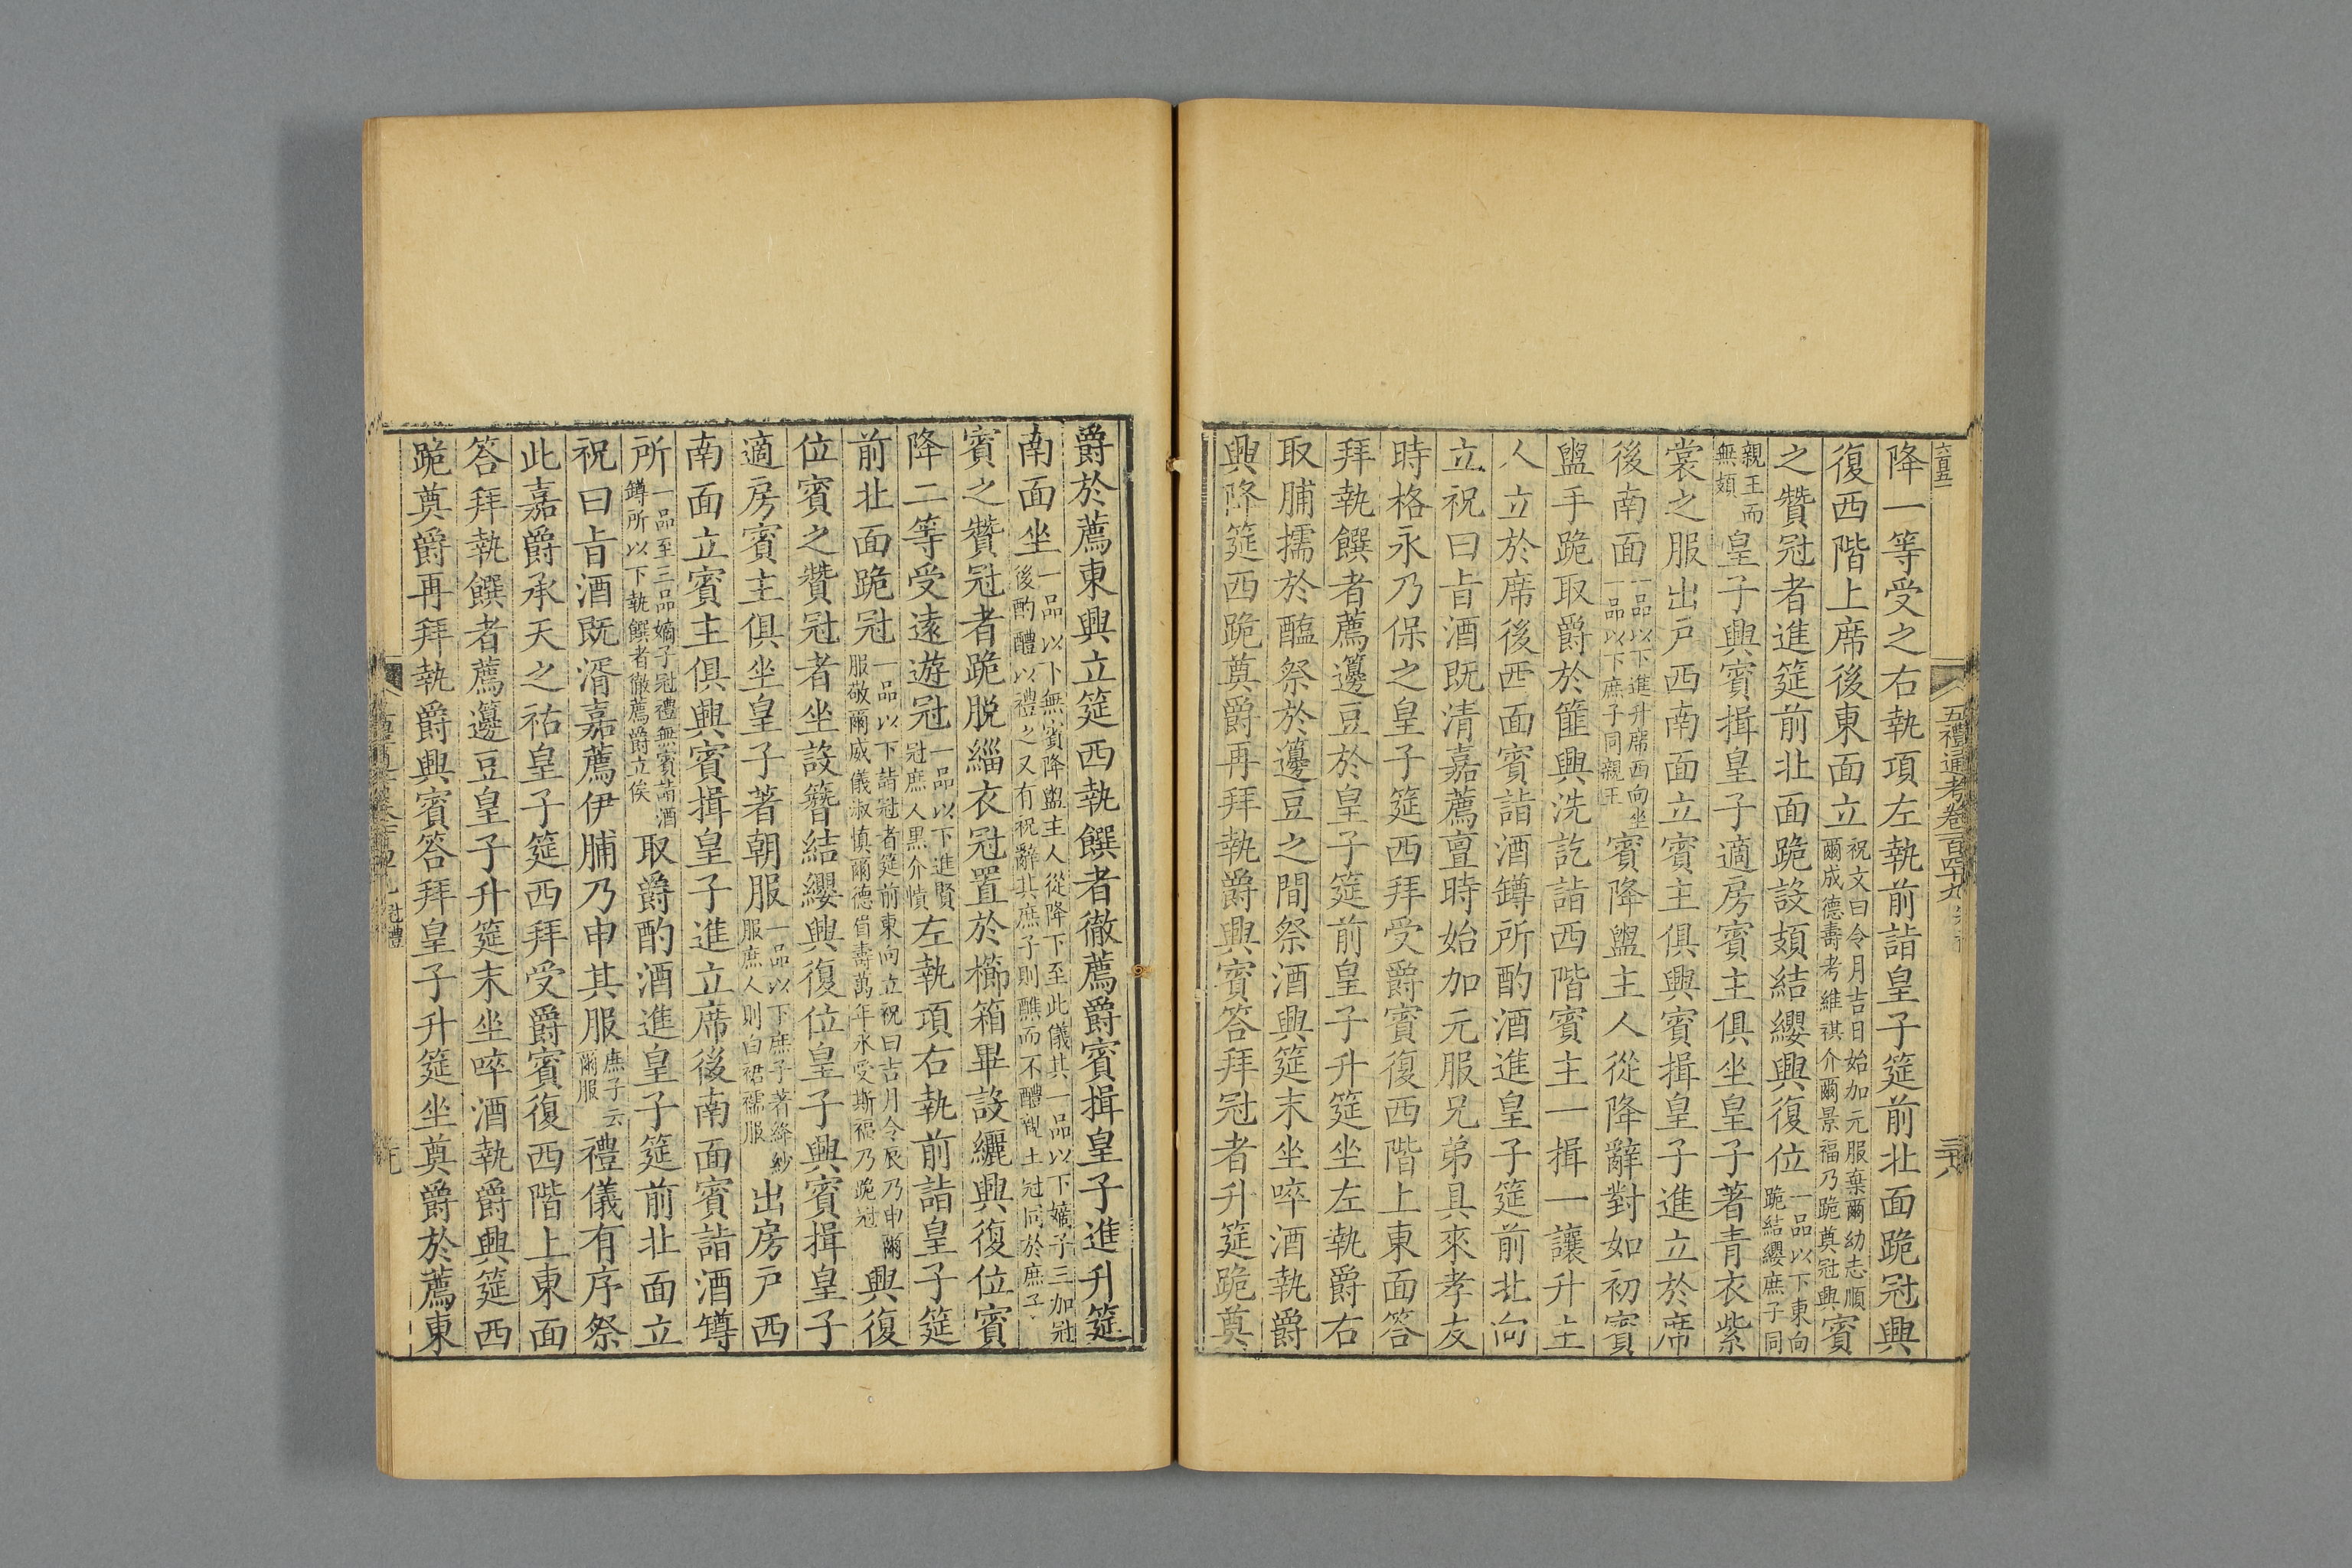 六百五一
五禮通考卷一百四十九
降一等受之右執項左執前詣皇子筵前北面跪冠興
復西階上席後東面立祝文曰令月吉日始加元服棄爾幼志順爾成德壽考維祺介爾景福乃跪奠冠興賓
之贊冠者進筵前北面跪設頍結纓興復位一品以下東向跪結纓庶子同
親王而無頍皇子興賓揖皇子適房賓主俱坐皇子著青衣紫
裳之服出戸西南面立賓主俱興賓揖皇子進立於席
後南面一品以下進升席西向坐一品以下庶子同親王賓降盥主人從降辭對如初賓
盥手跪取爵於篚興洗訖詣西階賓主一揖一讓升主
人立於席後西面賓詣酒罇所酌酒進皇子筵前北向
立祝曰㫖酒既清嘉薦亶時始加元服兄弟具來孝友
時格永乃保之皇子筵西拜受爵賓復西階上東面答
拜執饌者薦籩豆於皇子筵前皇子升筵坐左執爵右
取脯擩於醢祭於籩豆之間祭酒興筵末坐啐酒執爵
興降筵西跪奠爵再拜執爵興賓答拜冠者升筵跪奠
爵於薦東興立筵西執饌者徹薦爵賓揖皇子進升筵
南面坐一品以下無賓降盥主人從降下至此儀其一品以下嫡子三加冠後酌醴以禮之又有祝辭其庶子則醮而不醴親王冠同於庶子
賓之贊冠者跪脱緇衣冠置於櫛箱畢設纚興復位賓
降二等受遠遊冠一品以下進賢冠庶人黒介幘左執項右執前詣皇子筵
前北面跪冠一品以下詣冠者筵前東向立祝曰吉月令辰乃申爾服敬爾威儀淑慎爾德眉壽萬年永受斯福乃跪冠興復
位賓之贊冠者坐設簪結纓興復位皇子興賓揖皇子
適房賓主俱坐皇子著朝服一品以下庶子著絳紗服庶人則白裙襦服出房戸西
南面立賓主俱興賓揖皇子進立席後南面賓詣酒罇
所一品至三品嫡子冠禮無賓詣酒罇所以下執饌者徹薦爵立俟取爵酌酒進皇子筵前北面立
祝曰㫖酒既湑嘉薦伊脯乃申其服庶子云爾服禮儀有序祭
此嘉爵承天之祜皇子筵西拜受爵賓復西階上東面
答拜執饌者薦籩豆皇子升筵末坐啐酒執爵興筵西
跪奠爵再拜執爵興賓答拜皇子升筵坐奠爵於薦東